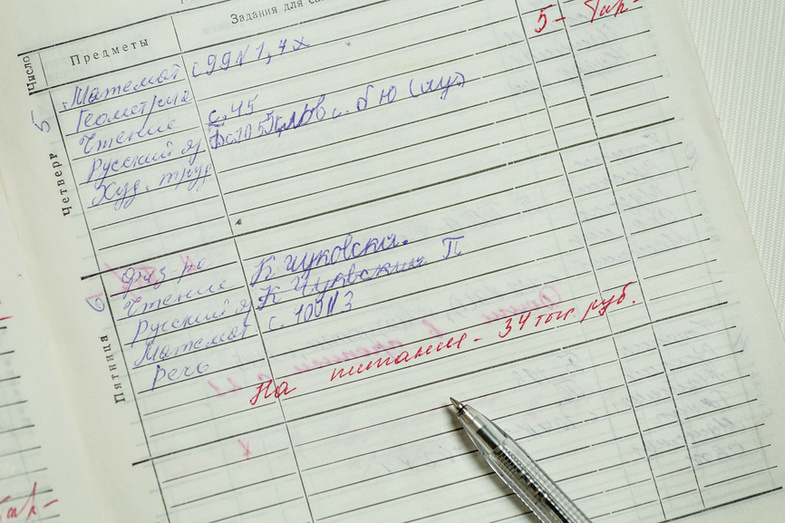 Число Предметы Задания для
5 - Тар-
5 Четверг
Математ с 99 N 1, 4 х
Геометрия
Чтение с. 45
Русский яз.
Худ. труд
6 Пятница
Физ-ра
Чтение К Чуковский.
Русский яз К Чуковский П
Математ с 100 N 3
Речь
На питание - 34 тыс руб.